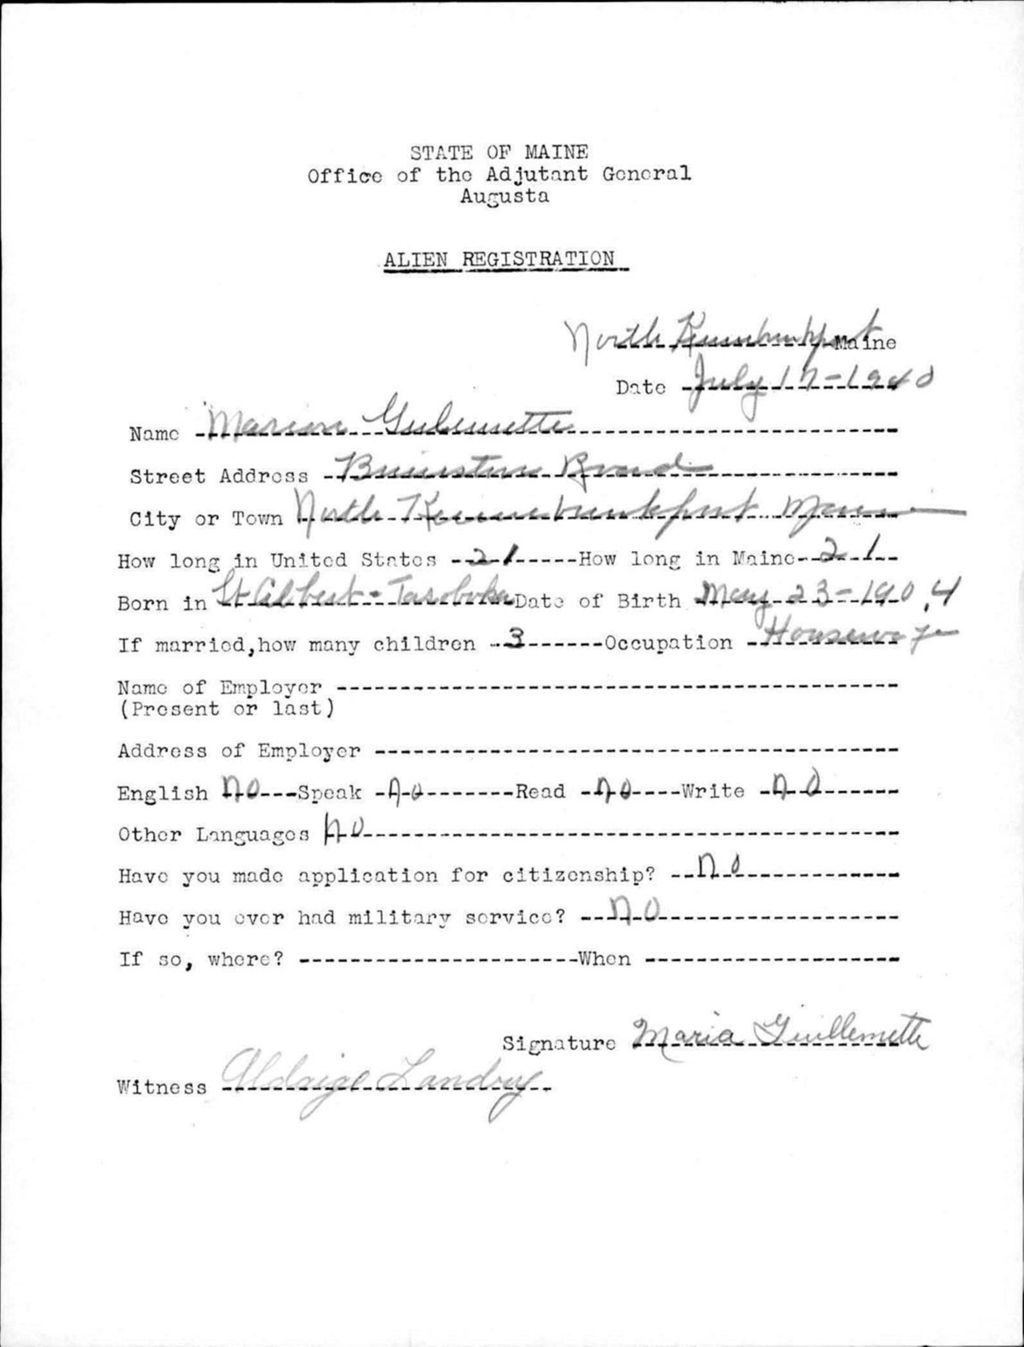 STATE OF MAINE
Office of the Adjutant General
Augusta
ALIEN REGISTRATION
North Kennebunkport Maine
Date July 17-1940
Name Marion
Street Address Road
City or Town North Kennebunkport Maine
How long in United States 21 How long in Maine 21
Born in St Albert - Date of Birth May 23-1904
If married, how many children 3 Occupation Housewife
Name of Employer
(Present or last)
Address of Employer
English no Speak no Read no Write no
Other Languages no
Have you made application for citizenship? no
Have you ever had military service? no
If so, where? When
Signature Maria Guillemette
Witness Landry